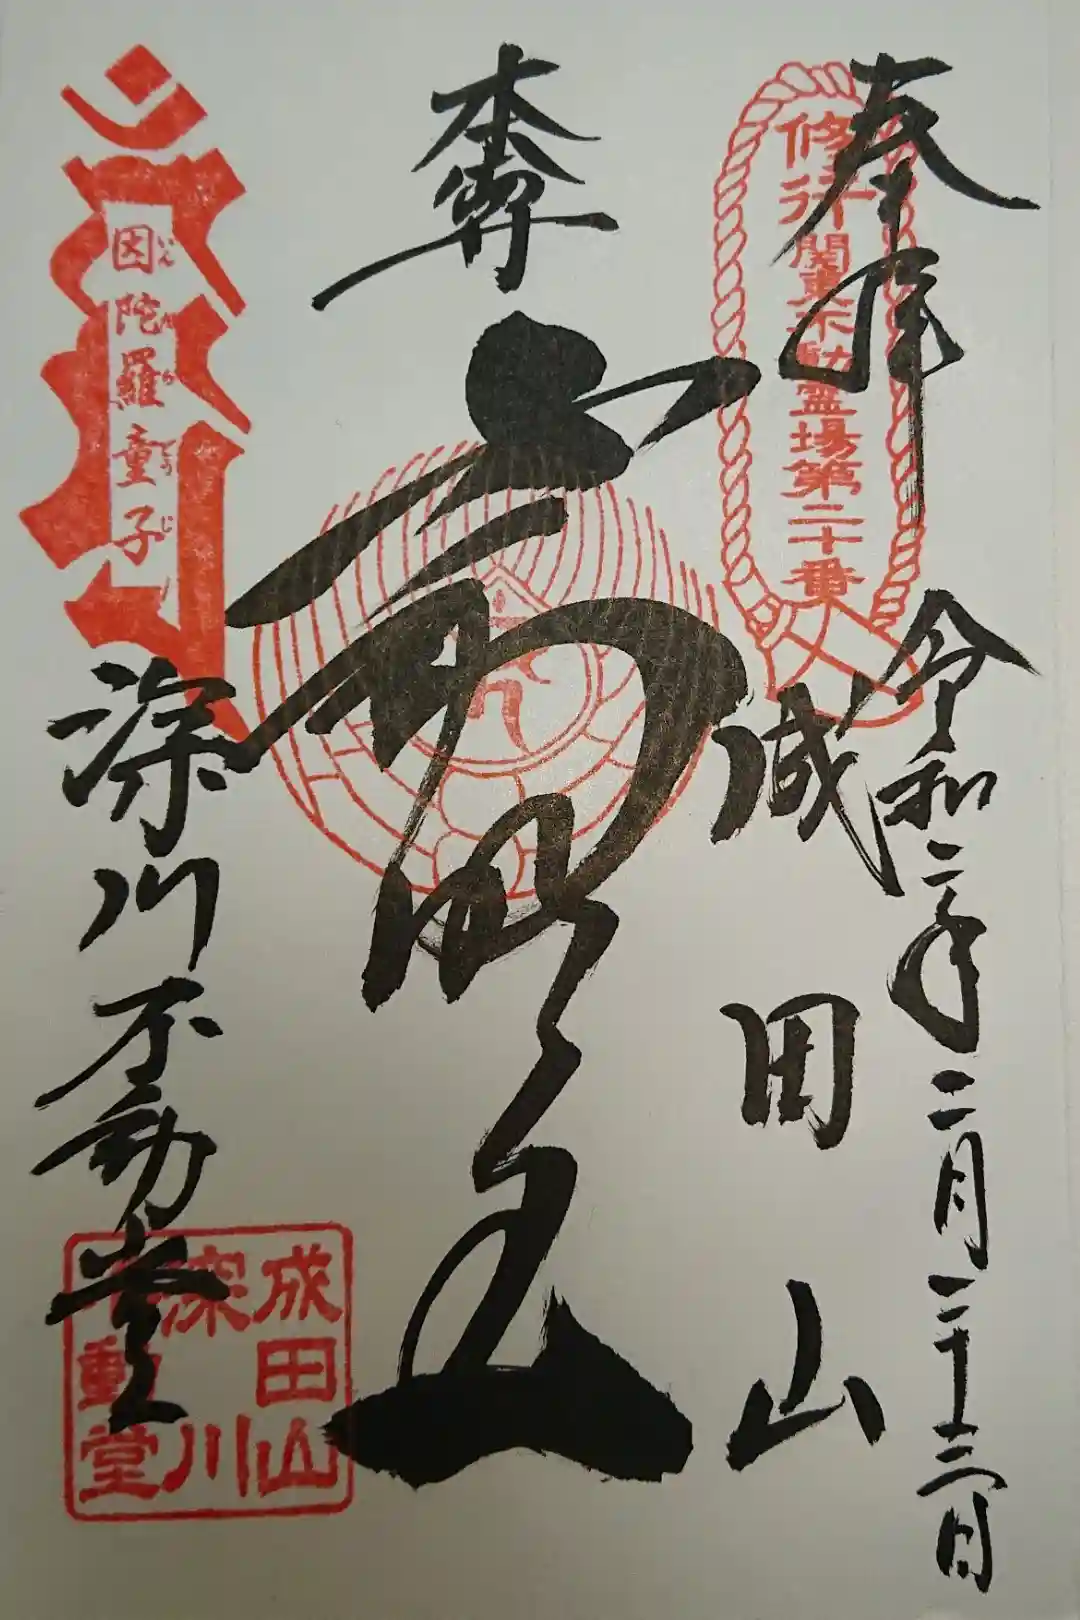 奉拝
修行
関東不動霊場第二十番
令和二年二月二十三日
成田山
本尊
不動明王
因陀羅童子
いんだらどうじ
深川不動堂
成田山
深川
不動堂